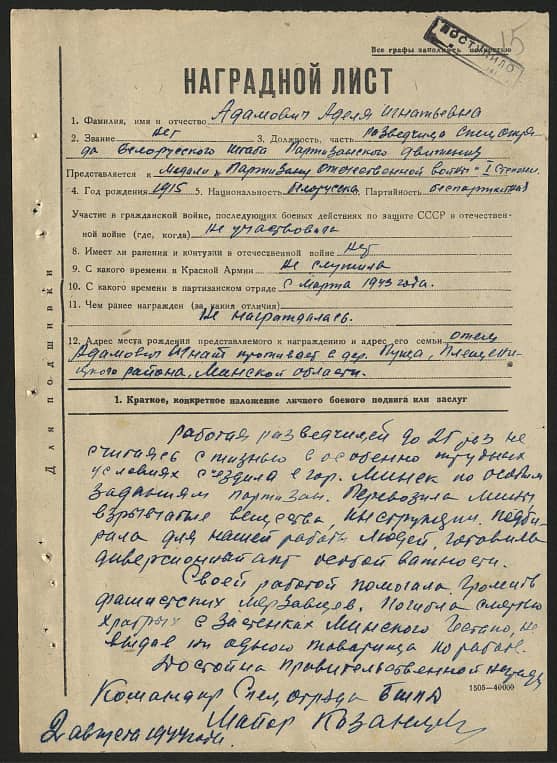 15
Все графы заполнять полностью
ПОСТУПИЛО
НАГРАДНОЙ ЛИСТ
1. Фамилия, имя и отчество Адамович Аделя Игнатьевна
2. Звание нет 3. Должность, часть разведчица Спецотря-
да Белорусского штаба Партизанского движения
Представляется к Медали "Партизану отечественной войны" I степени
4. Год рождения 1915 5. Национальность белорусска 6. Партийность беспартийная
Участие в гражданской войне, последующих боевых действиях по защите СССР и отечествен-
ной войне (где, когда) Не участвовала
8. Имеет ли ранения и контузии в отечественной войне Нет
9. С какого времени в Красной Армии Не служила
10. С какого времени в партизанском отряде с марта 1943 года.
11. Чем ранее награжден (за какия отличия)
Не награждалась.
12. Адрес места рождения представляемого к награждению и адрес его семьи отец
Адамович Игнат проживает в дер. Пуща, Плещени-
цкого района, Минской области.
Для подшивки
1. Краткое, конкретное изложение личного боевого подвига или заслуг
Работая разведчицей до 25 раз не
считаясь с жизнью в особенно трудных
условиях съездила в гор. Минск по особым
заданиям партизан. Перевозила мины
взрывчатые вещества, инструкции. Подби-
рала для нашей работы людей, готовила
диверсионный акт особой важности.
Своей работой помогала громить
фашистских мерзавцев. Погибла смертью
храбрых в застенках Минского Гестапо, не
выдав ни одного товарища по работе.
Достойна правительственной награды
1505—40000
Командир Спец,отряда БШПД
Майор Казанцев
2 августа 1944 года.